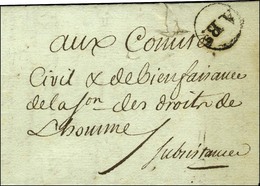 aux Comité
Civil & de bienfaisance
de la s.on des droits de
Lhomme
subsistances